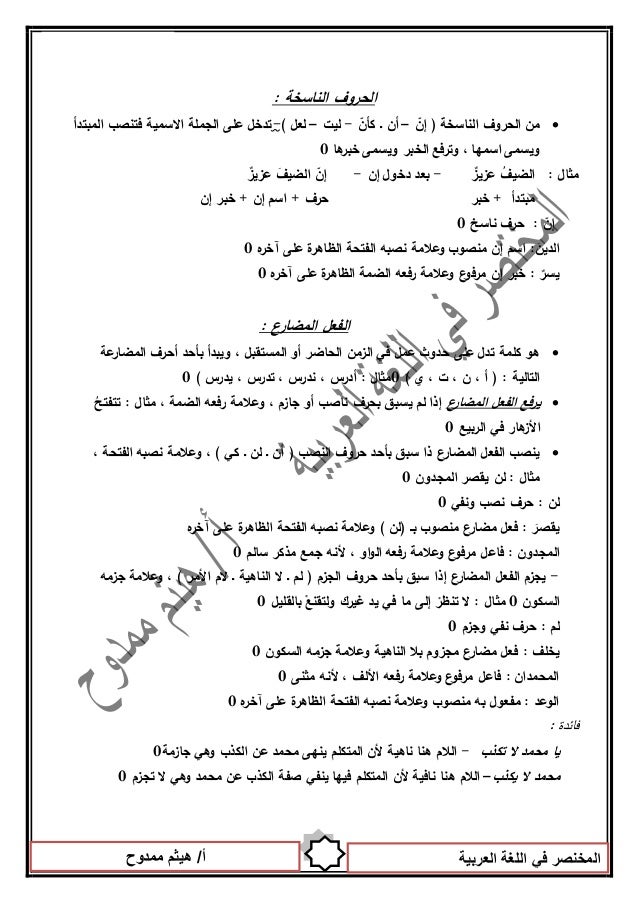 الحروف الناسخة :
• من الحروف الناسخة ( إنّ – أن . كأنّ - ليت – لعل ) تدخل على الجملة الاسمية فتنصب المبتدأ
ويسمى اسمها ، وترفع الخبر ويسمى خبرها 0
مثال : الضيفُ عزيزٌ - بعد دخول إن - إنّ الضيفَ عزيزٌ
مبتدأ + خبر حرف + اسم إن + خبر إن
إن : حرف ناسخ 0
الدين: اسم إن منصوب وعلامة نصبه الفتحة الظاهرة على آخره 0
يسرٌ : خبر إن مرفوع وعلامة رفعه الضمة الظاهرة على آخره 0
الفعل المضارع :
• هو كلمة تدل على حدوث عمل في الزمن الحاضر أو المستقبل ، ويبدأ بأحد أحرف المضارعة
التالية : ( أ ، ن ، ت ، ي ) 0مثال : أدرس ، ندرس ، تدرس ، يدرس ) 0
• يرفع الفعل المضارع إذا لم يسبق بحرف ناصب أو جازم ، وعلامة رفعه الضمة ، مثال : تتفتحُ
الأزهار في الربيع 0
• ينصب الفعل المضارع ذا سبق بأحد حروف النصب ( أن . لن . كي ) ، وعلامة نصبه الفتحة ،
مثال : لن يقصر المجدون 0
لن : حرف نصب ونفي 0
يقصرَ : فعل مضارع منصوب بـ (لن ) وعلامة نصبه الفتحة الظاهرة على آخره
المجدون : فاعل مرفوع وعلامة رفعه الواو ، لأنه جمع مذكر سالم 0
- يجزم الفعل المضارع إذا سبق بأحد حروف الجزم ( لم . لا الناهية . لام الأمر ) ، وعلامة جزمه
السكون 0 مثال : لا تنظرْ إلى ما في يد غيرك ولتقنعْ بالقليل 0
لم : حرف نفي وجزم 0
يخلف : فعل مضارع مجزوم بلا الناهية وعلامة جزمه السكون 0
المحمدان : فاعل مرفوع وعلامة رفعه الألف ، لأنه مثنى 0
الوعد : مفعول به منصوب وعلامة نصبه الفتحة الظاهرة على آخره 0
فائدة :
يا محمد لا تكذب - اللام هنا ناهية لأن المتكلم ينهى محمد عن الكذب وهي جازمة0
محمد لا يكذب – اللام هنا نافية لأن المتكلم فيها ينفي صفة الكذب عن محمد وهي لا تجزم 0
المختصر في اللغة العربية
أ/ هيثم ممدوح
المختصر في اللغة العربية
أ/ هيثم ممدوح